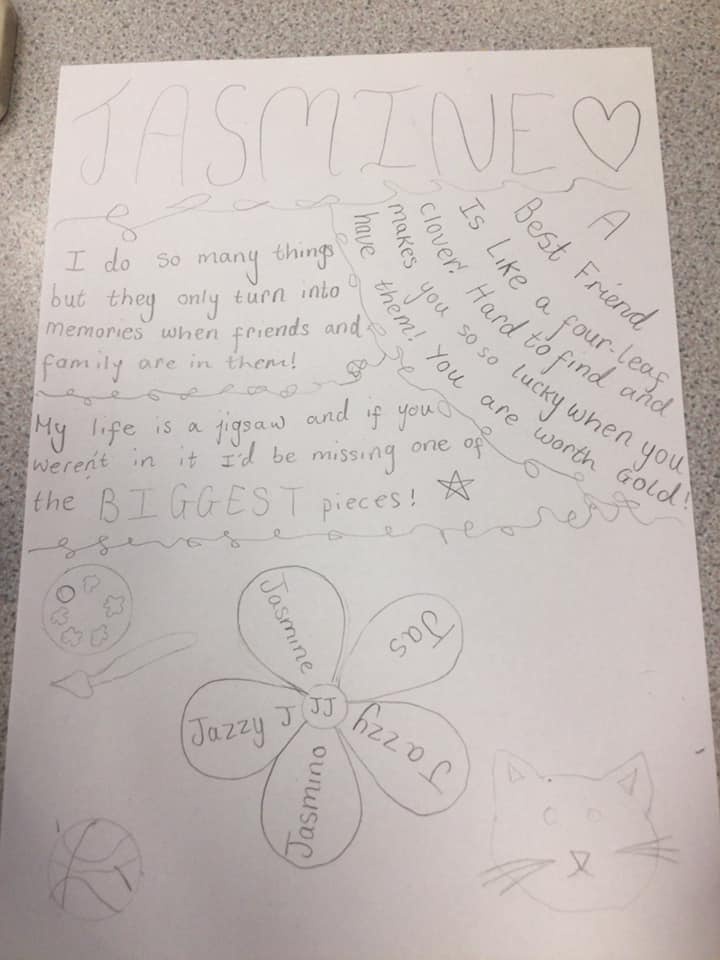 JASMINE
I do so many things
but they only turn into
memories when friends and
family are in them!
A
Best Friend
Is Like a four-leaf
clover! Hard to find and
makes you so so lucky when you
have them! You are worth Gold!
My life is a jigsaw and if you
weren't in it I'd be missing one of
the BIGGEST pieces!
Jasmine
Jas
Jazzy
Jasmino
Jazzy J
JJ